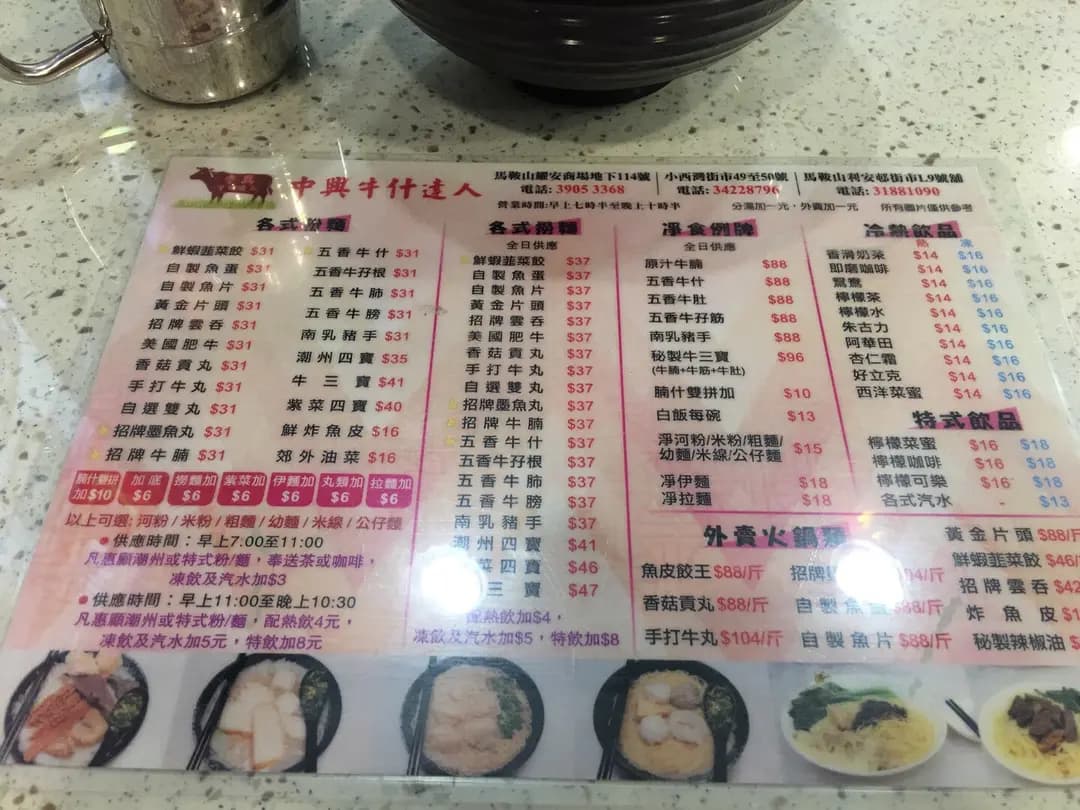 中興牛什達人
馬鞍山耀安商場地下114號 小西灣街市49至50號 馬鞍山利安邨街市L9號舖
電話: 3905 3368 電話: 34228796 電話: 31881090
營業時間:早上七時半至晚上十時半 分湯加一元，外賣加一元 所有圖片僅供參考
各式粉麵
鮮蝦韮菜餃 $31
自製魚蛋 $31
自製魚片 $31
黃金片頭 $31
招牌雲吞 $31
美國肥牛 $31
香菇貢丸 $31
手打牛丸 $31
自選雙丸 $31
招牌墨魚丸 $31
招牌牛腩 $31
五香牛什 $31
五香牛孖根 $31
五香牛肺 $31
五香牛膀 $31
南乳豬手 $31
潮州四寶 $35
牛三寶 $41
紫菜四寶 $40
鮮炸魚皮 $16
郊外油菜 $16
腩什雙拼加$10
加底 $6
撈麵加 $6
紫菜加 $6
伊麵加 $6
丸類加 $6
拉麵加 $6
以上可選: 河粉 / 米粉 / 粗麵 / 幼麵 / 米線 / 公仔麵
●供應時間：早上7:00至11:00
凡惠顧潮州或特式粉/麵，奉送茶或咖啡，
凍飲及汽水加$3
●供應時間：早上11:00至晚上10:30
凡惠顧潮州或特式粉/麵，配熱飲4元，
凍飲及汽水加5元，特飲加8元
各式撈麵
全日供應
鮮蝦韮菜餃 $37
自製魚蛋 $37
自製魚片 $37
黃金片頭 $37
招牌雲吞 $37
美國肥牛 $37
香菇貢丸 $37
手打牛丸 $37
自選雙丸 $37
招牌墨魚丸 $37
招牌牛腩 $37
五香牛什 $37
五香牛孖根 $37
五香牛肺 $37
五香牛膀 $37
南乳豬手 $37
潮州四寶 $41
菜四寶 $46
三寶 $47
配熱飲加$4，
凍飲及汽水加$5，特飲加$8
凈食例牌
全日供應
原汁牛腩 $88
五香牛什 $88
五香牛肚 $88
五香牛孖筋 $88
南乳豬手 $88
秘製牛三寶 $96
(牛腩+牛筋+牛肚)
腩什雙拼加 $10
白飯每碗 $13
淨河粉/米粉/粗麵/
幼麵/米線/公仔麵 $15
凈伊麵 $18
凈拉麵 $18
冷熱飲品
熱 凍
香滑奶茶 $14 $16
即磨咖啡 $14 $16
鴛鴦 $14 $16
檸檬茶 $14 $16
檸檬水 $14 $16
朱古力 $14 $16
阿華田 $14 $16
杏仁霜 $14 $16
好立克 $14 $16
西洋菜蜜 $14 $16
特式飲品
檸檬菜蜜 $16 $18
檸檬咖啡 $16 $18
檸檬可樂 $16 $18
各式汽水 - $13
外賣火鍋類
魚皮餃王 $88/斤
香菇貢丸 $88/斤
手打牛丸 $104/斤
招牌 04/斤
自製魚 $88/斤
自製魚片 $88/斤
黃金片頭 $88/斤
鮮蝦韮菜餃 $46/
招牌雲吞 $42
炸魚皮 $1
秘製辣椒油 $